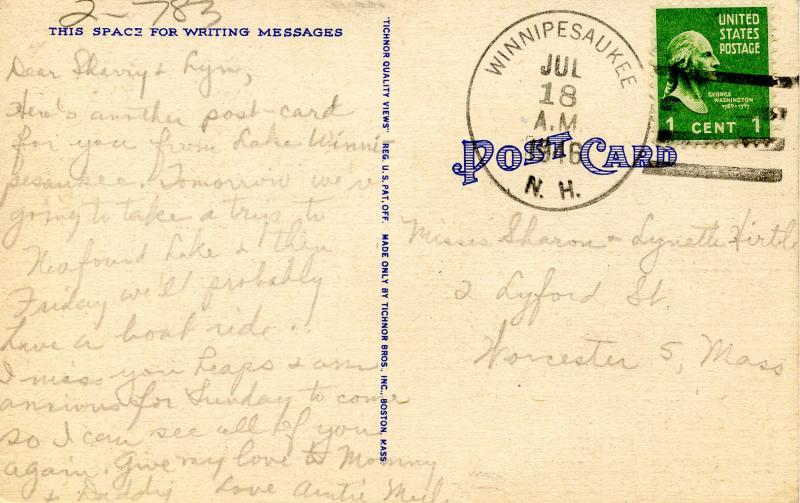 2-783
THIS SPACE FOR WRITING MESSAGES
Dear Sharry & Lyn,
Here's another post-card
for you from Lake Winni-
pesaukee. Tomorrow we're
going to take a trip to
Newfound Lake & then
Friday we'll probably
have a boat ride.
I miss you heaps & am
anxious for Sunday to come
so I can see all of you
again. Give my love to Mommy
& Daddy Love Auntie
"TICHNOR QUALITY VIEWS" REG. U.S. PAT. OFF. MADE ONLY BY TICHNOR BROS., INC., BOSTON, MASS.
WINNIPESAUKEE
JUL
18
A.M.
1946
N. H.
UNITED
STATES
POSTAGE
GEORGE
WASHINGTON
1789-1797
1 CENT 1
POST CARD
Misses Sharon & Lynette
2 Lyford St.
Worcester 5, Mass